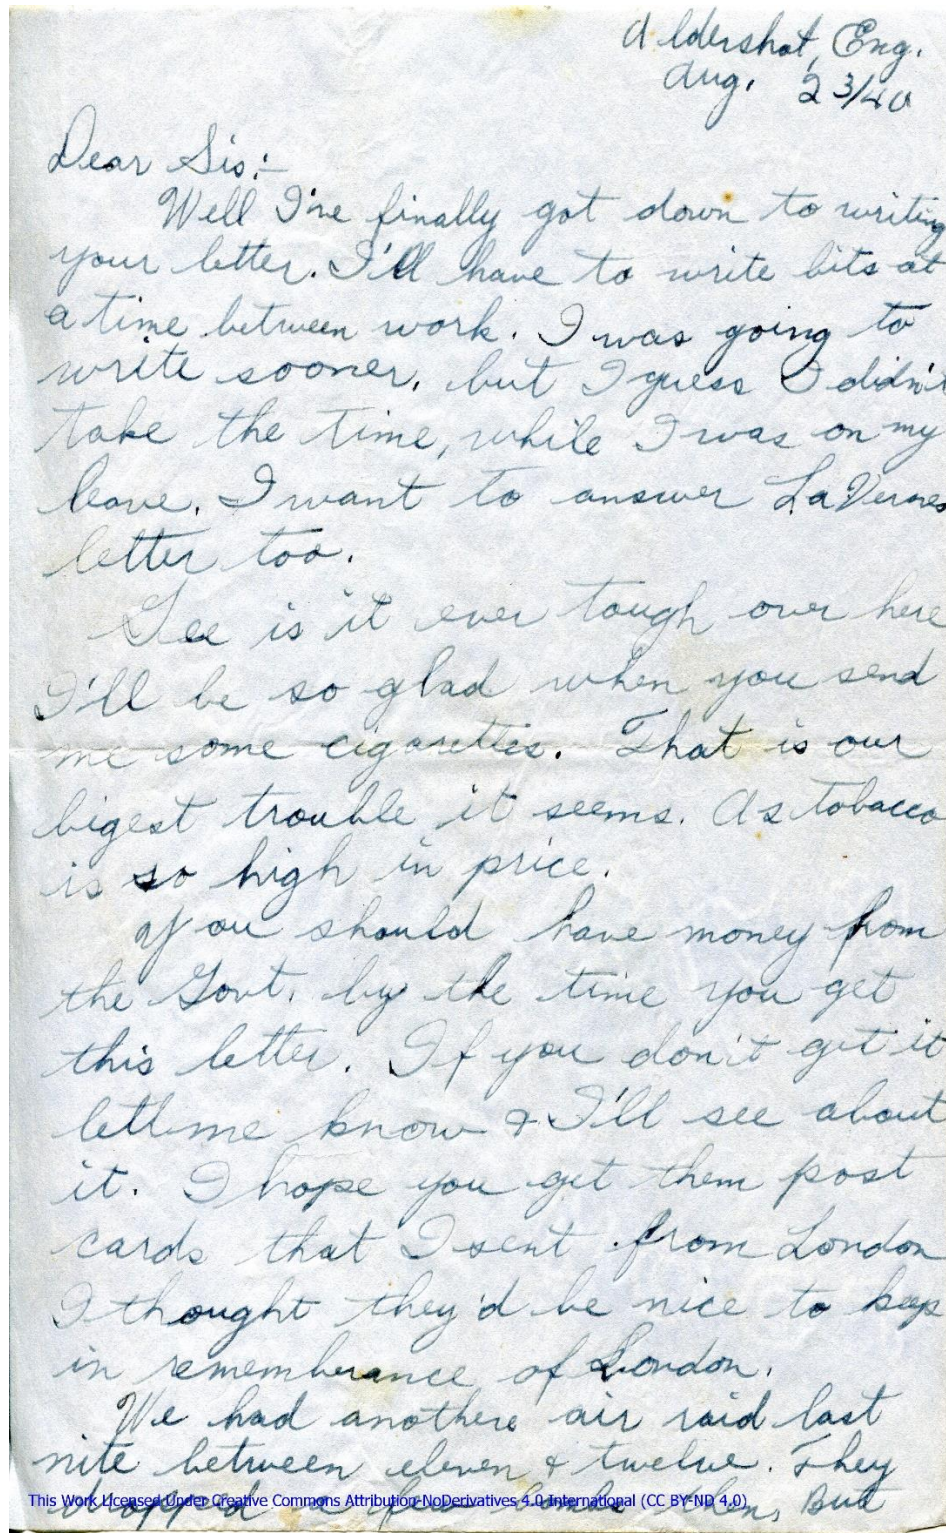 Aldershot, Eng.
Aug. 23/40
Dear Sis:-
Well I've finally got down to writing
your letter. I'll have to write bits at
a time between work. I was going to
write sooner, but I guess I didn't
take the time, while I was on my
leave. I want to answer LaVernes
letter too.
Gee is it ever tough over here
I'll be so glad when you send
me some cigarettes. That is our
bigest trouble it seems. As tobacco
is so high in price.
You should have money from
the Govt. by the time you get
this letter. If you don't get it
let me know & I'll see about
it. I hope you get them post
cards that I sent from London
I thought they'd be nice to keep
in rememberance of London.
We had anothere air raid last
nite between eleven & twelve. They
This Work Licensed Under Creative Commons Attribution-NoDerivatives 4.0 International (CC BY-ND 4.0)
dropped a few bombs then, But